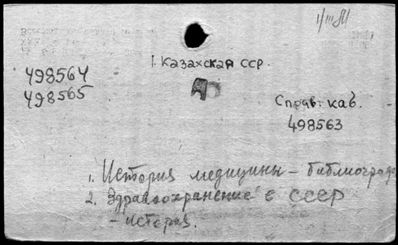 1/III 81
1. Казахская ССР.
498564
498565
Справ. каб.
498563
1. История медицины – библиография
2. Здравоохранение в СССР
– история.